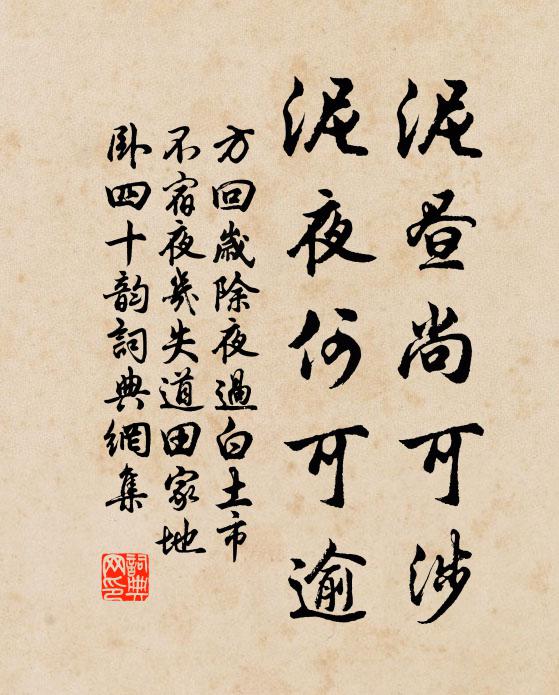 泥昼尚可涉
泥夜何可逾
方回歲除夜過白土市
不宿夜幾失道田家地
臥四十韵詞典網集
詞典网印